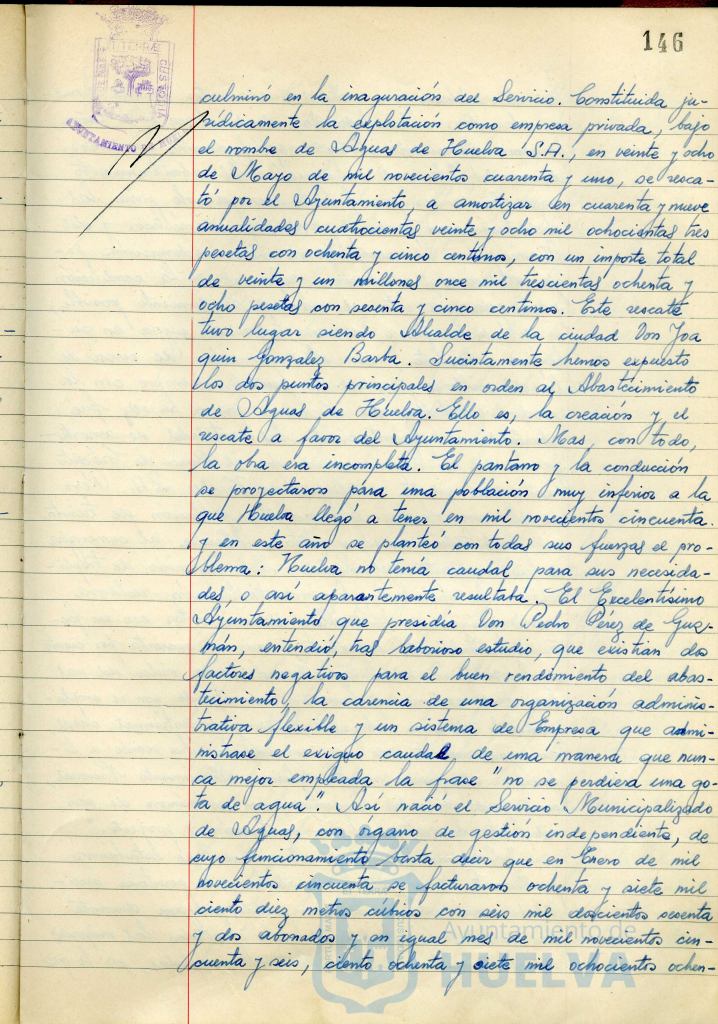 146
AYUNTAMIENTO DE
culminó en la inaguración del Servicio. Constituida ju-
rídicamente la explotación como empresa privada, bajo
el nombre de Aguas de Huelva S.A., en veinte y ocho
de Mayo de mil novecientos cuarenta y uno, se resca-
tó por el Ayuntamiento, a amortizar en cuarenta y nueve
anualidades cuatrocientas veinte y ocho mil ochocientas tres
pesetas con ochenta y cinco centimos, con un importe total
de veinte y un millones once mil trescientas ochenta y
ocho pesetas con sesenta y cinco centimos. Este rescate
tuvo lugar siendo Alcalde de la ciudad Don Joa
quin Gonzalez Barba. Sucintamente hemos expuesto
los dos puntos principales en orden al Abastecimiento
de Aguas de Huelva. Ello es, la creación y el
rescate a favor del Ayuntamiento. Mas, con todo,
la obra era incompleta. El pantano y la conducción
se proyectaron para una población muy inferior a la
que Huelva llegó a tener en mil novecientos cincuenta.
y en este año se planteó con todas sus fuerzas el pro-
blema: Huelva no tenía caudal para sus necesida-
des, o así aparantemente resultaba. El Excelentísimo
Ayuntamiento que presidía Don Pedro Pérez de Guz-
mán, entendió, tras laborioso estudio, que existian dos
factores negativos para el buen rendimiento del abas-
tecimiento, la carencia de una organización adminis-
trativa flexible y un sistema de Empresa que admi-
nistrase el exiguo caudal de una manera que nun-
ca mejor empleada la frase "no se perdiera una go-
ta de agua". Así nació el Servicio Municipalizado
de Aguas, con órgano de gestión independiente, de
cuyo funcionamiento basta decir que en Enero de mil
novecientos cincuenta se facturaron ochenta y siete mil
ciento diez metros cúbicos con seis mil doscientos sesenta
y dos abonados y en igual mes de mil novecientos cin-
cuenta y seis, ciento ochenta y siete mil ochocientos ochen-
Ayuntamiento de
HUELVA